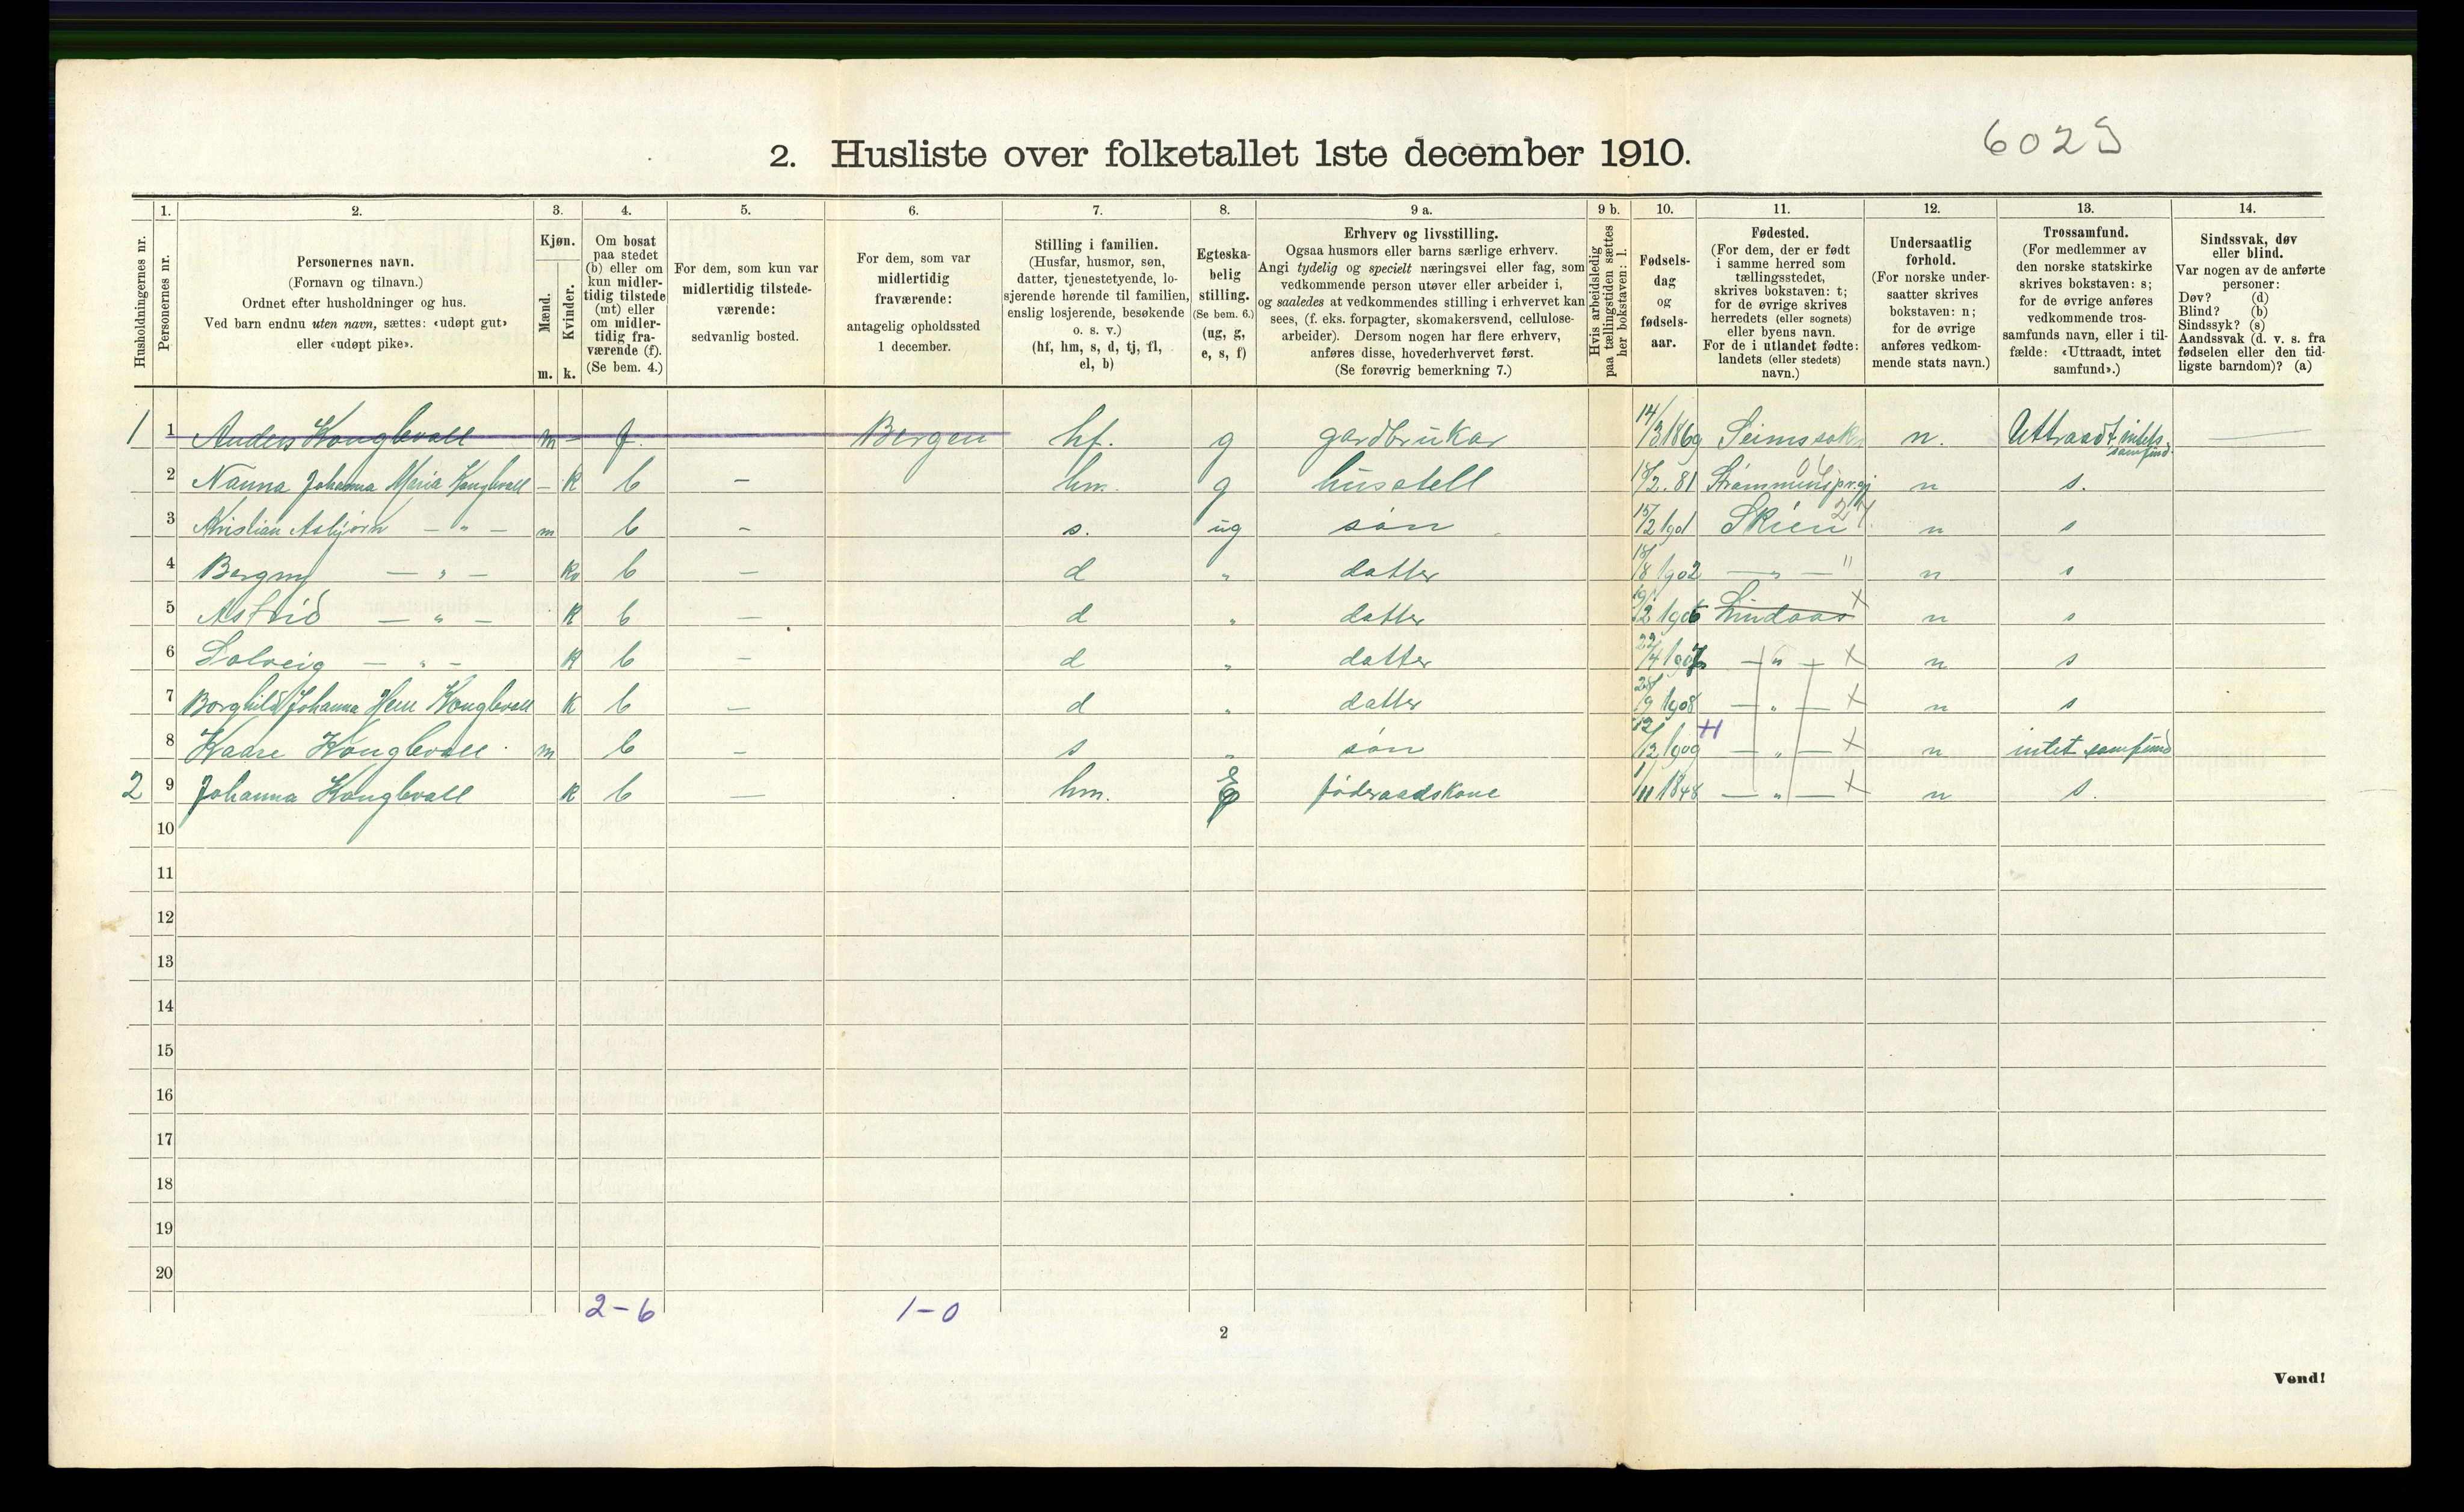 6029
2. Husliste over folketallet 1ste december 1910.
1. 2. 3. 4. 5. 6. 7. 8. 9 a. 9 b. 10. 11. 12. 13. 14.
Husholdningernes nr.
Personernes nr.
Personernes navn.
(Fornavn og tilnavn.)
Ordnet efter husholdninger og hus.
Ved barn endnu uten navn, sættes: «udøpt gut»
eller «udøpt pike».
Kjøn.
Mænd.
Kvinder.
m. k.
Om bosat
paa stedet
(b) eller om
kun midler-
tidig tilstede
(mt) eller
om midler-
tidig fra-
værende (f).
(Se bem. 4.)
For dem, som kun var
midlertidig tilstede-
værende:
sedvanlig bosted.
For dem, som var
midlertidig
fraværende:
antagelig opholdssted
1 december.
Stilling i familien.
(Husfar, husmor, søn,
datter, tjenestetyende, lo-
sjerende hørende til familien,
enslig losjerende, besøkende
o. s. v.)
(hf, hm, s, d, tj, fl,
el, b)
Egteska-
belig
stilling.
(Se bem. 6.)
(ug, g,
e, s, f)
Erhverv og livsstilling.
Ogsaa husmors eller barns særlige erhverv.
Angi tydelig og specielt næringsvei eller fag, som
vedkommende person utøver eller arbeider i,
og saaledes at vedkommendes stilling i erhvervet kan
sees, (f. eks. forpagter, skomakersvend, cellulose-
arbeider). Dersom nogen har flere erhverv,
anføres disse, hovederhvervet først.
(Se forøvrig bemerkning 7.)
Hvis arbeidsledig
paa tællingstiden sættes
her bokstaven: l.
Fødsels-
dag
og
fødsels-
aar.
Fødested.
(For dem, der er født
i samme herred som
tællingsstedet,
skrives bokstaven: t;
for de øvrige skrives
herredets (eller sognets)
eller byens navn.
For de i utlandet fødte:
landets (eller stedets)
navn.)
Undersaatlig
forhold.
(For norske under-
saatter skrives
bokstaven: n;
for de øvrige
anføres vedkom-
mende stats navn.)
Trossamfund.
(For medlemmer av
den norske statskirke
skrives bokstaven: s;
for de øvrige anføres
vedkommende tros-
samfunds navn, eller i til-
fælde: «Uttraadt, intet
samfund».)
Sindssvak, døv
eller blind.
Var nogen av de anførte
personer:
Døv? (d)
Blind? (b)
Sindssyk? (s)
Aandssvak (d. v. s. fra
fødselen eller den tid-
ligste barndom)? (a)
1 1 Anders Konglevoll m - f. - Bergen hf. g gardbrukar 14/3 1869 Seimssokn n. Uttraadt, intets samfund. —
2 Nanna Johanna Maria Konglevoll - k b - hm. g husstell 18/2. 81 n s.
3 Kristian Asbjørn — " — m b - s. ug søn 15/2 1901 Skien n s
4 Bergny — " — k b — d " datter 18/8 1902 — " — n s
5 Astrid — " — k b — d " datter 12 1905 Lindaas n s
6 Solveig — " — k b — d " datter 22/4 1907 — " — n s
7 Borghild Johanna Konglevoll k b — d " datter 28/9 1908 — " — n s
8 Kaare Konglevoll m b - s " søn 12/12 1909 — " — n intet samfund
2 9 Johanna Konglevoll k b — hm. E føderaadskone 1/11 1848 — " — n s.
10
11
12
13
14
15
16
17
18
19
20
2-6 1-0
2
Vend!